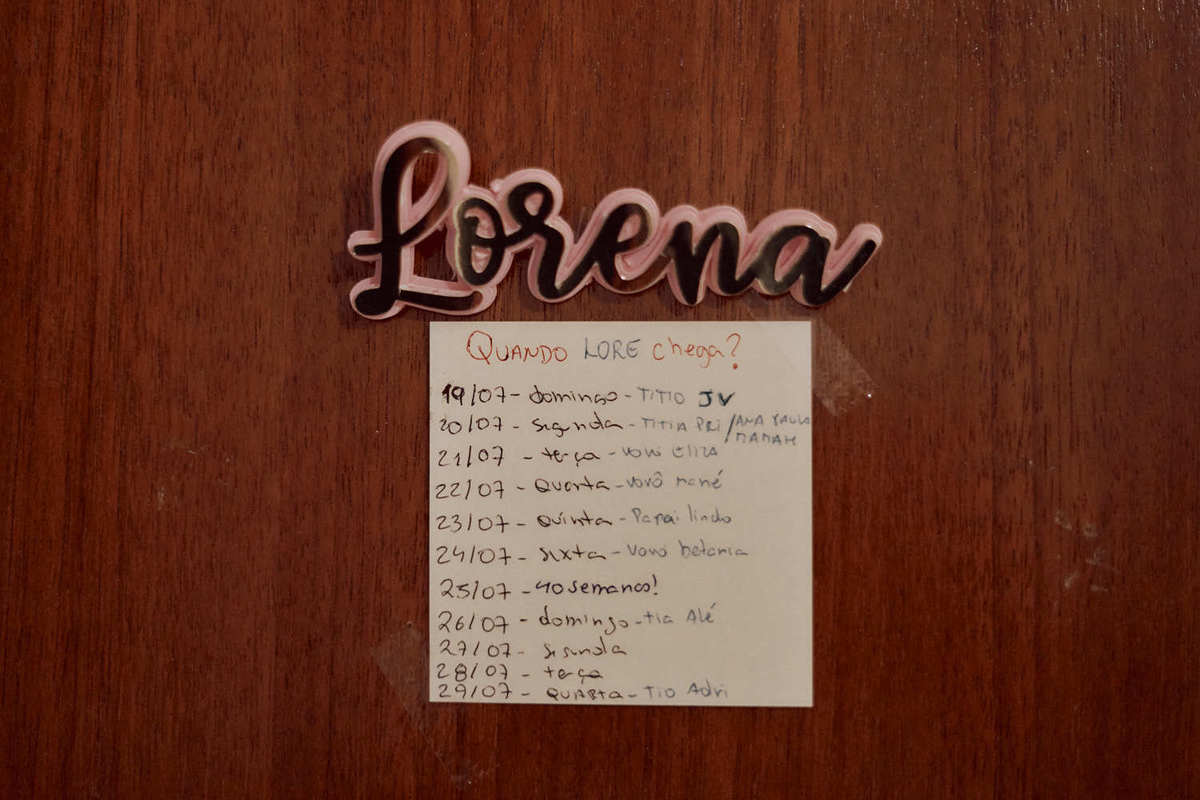 Lorena
QUANDO LORE chega?
19/07 - domingo - TITIO JV
20/07 - segunda - TITIA PRI / ANA PAULA
MAMAH
21/07 - terça - vovó ELIZA
22/07 - Quarta - vovô mané
23/07 - Quinta - Papai lindo
24/07 - sexta - vovó betania
25/07 - 40 semanas!
26/07 - domingo - tia Alé
27/07 - segunda
28/07 - terça
29/07 - QUARTA - Tio Adri